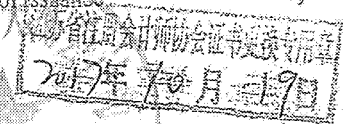 江苏省注册会计师协会证书更换专用章
2017年10月19日